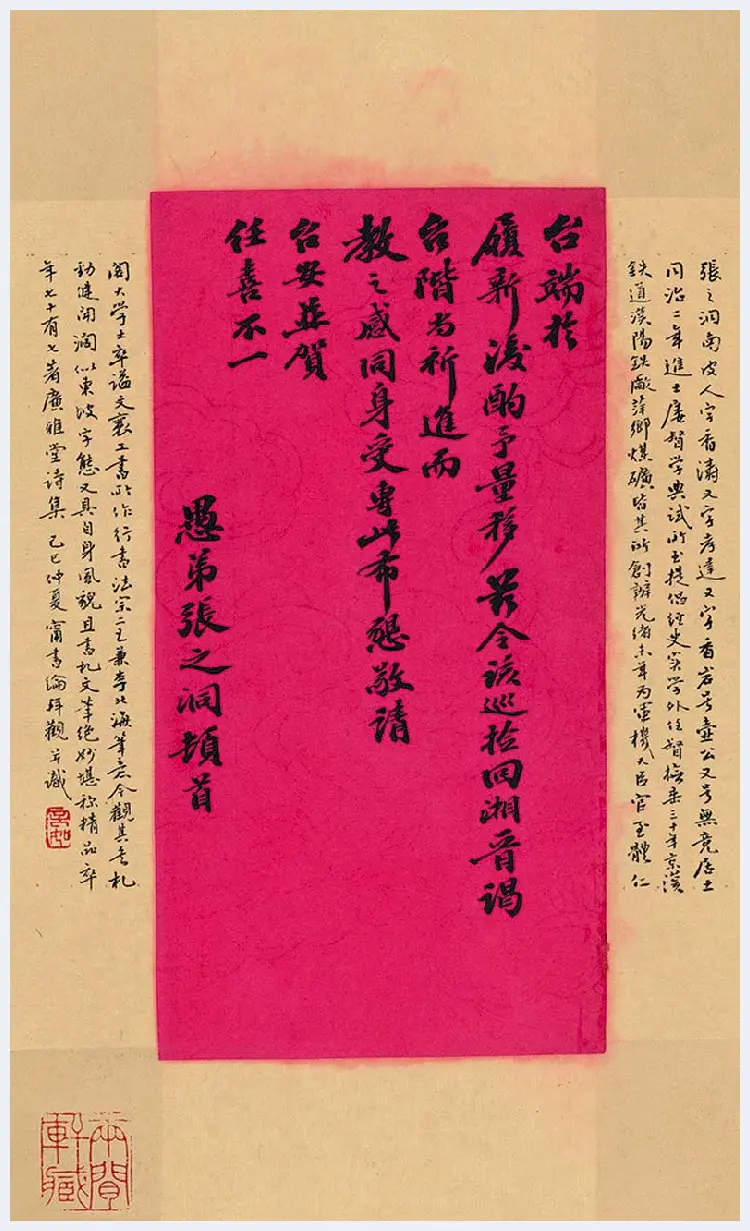 張之洞南皮人字香濤又字孝達又字香岩号壺公又号無競居士
同治二年進士屢督学典試所至提倡經史实学外任督撫垂三十年京漢
鉄道漢陽鉄廠萍鄉煤礦皆其所創辦光緒末年為軍機大臣官至體仁
台端於
履新後酌予量移若令該巡撿回湘晋謁
台階尚祈進而
教之感同身受專此布懇敬請
台安並賀
任喜不一
愚弟張之洞頓首
閣大学士卒謚文襄工書所作行書法宗二王兼李北海筆意今觀其手札
勁健開濶似東坡字態又具自身風貌且書札文筆絕妙堪称精品卒
年七十有七著廣雅堂詩集 乙巳仲夏甯書綸拜觀并識